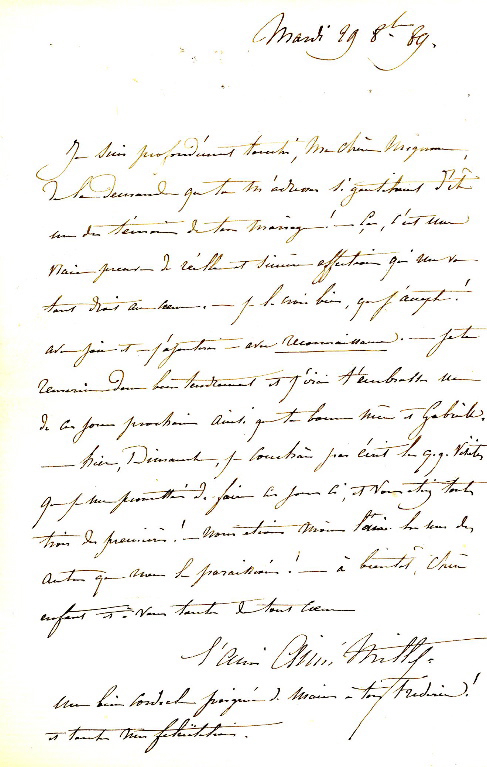 Mardi 29 8bre 89.
Je suis profondément touché, Ma chère Mignonne,
de la demande que tu m'adresses si gentiment d'être
un des témoins de ton mariage! — Ça, c'est une
vraie preuve de réelle et sincère affection qui me va
tout droit au cœur. — Je le crois bien, que j'accepte!
avec joie et — j'ajouterai — avec reconnaissance. — Je te
remercie donc bien tendrement et j'irai t'embrasser un
de ces jours prochains ainsi que ta bonne mère et Gabrielle.
— hier, Dimanche, je couchais par écrit les q.q. visites
que je me promettais de faire ces jours ci, et vous étiez toutes
trois des premières! — nous étions moins loin les uns des
autres que nous le paraissions! — à bientôt, chère
enfant et à vous toutes de tout cœur
l'ami Aimé Millet.
une bien cordiale poignée de mains à ton Frédéric!
et toutes mes félicitations.